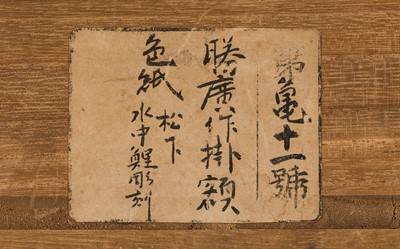 第亀十一號
勝廣作掛額
色紙 松下
水中鯉彫刻